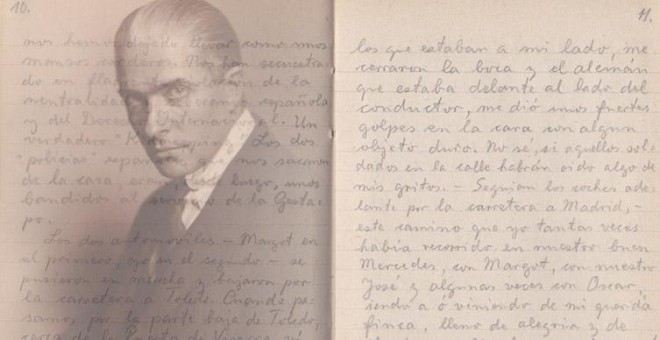 10.
nos hemos dejado llevar como unos
mansos corderos. Nos han secuestra-
do en flagrante violación de la
neutralidad y soberanía española
y del Derecho Internacional. Un
verdadero
Los dos
"policías" que nos sacaron
de la casa, eran, desde luego, unos
bandidos al servicio de la Gesta-
po.
Los dos automóviles — Margot en
el primero, yo en el segundo — se
pusieron en marcha y bajaron por
la carretera a Toledo. Cuando pa-
samos por la parte baja de Toledo,
cerca de la Puerta de Visagra,
11.
los que estaban a mi lado, me
cerraron la boca y el alemán
que estaba delante al lado del
conductor, me dió unos fuertes
golpes en la cara con algun
objeto duro. No sé, si aquellos sol-
dados en la calle habrán oido algo de
mis gritos. — Seguian los coches ade-
lante por la carretera a Madrid, —
este camino que yo tantas veces
había recorrido en nuestro buen
Mercedes, con Margot, con nuestro
José y algunas veces con Oscar,
yendo a ó viniendo de mi querida
finca, lleno de alegria y de